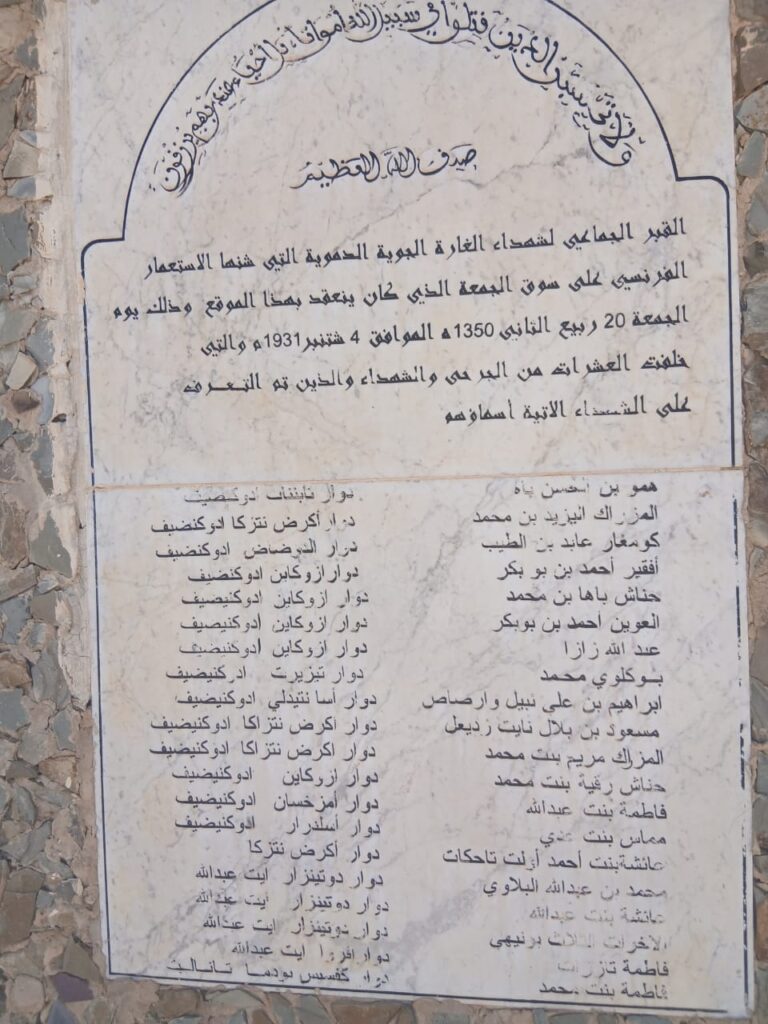 ولا تحسبن الذين قتلوا في سبيل الله أمواتا بل أحياء عند ربهم يرزقون
صدق الله العظيم
القبر الجماعي لشهداء الغارة الجوية الدموية التي شنها الاستعمار
الفرنسي على سوق الجمعة الذي كان ينعقد بهذا الموقع وذلك يوم
الجمعة 20 ربيع الثاني 1350ه الموافق 4 شتنبر 1931م والتي
خلفت العشرات من الجرحى والشهداء والذين تم التعرف
على الشهداء الاتية أسماؤهم
همو بن الحسن باه دوار ادوكنضيف
المزراك اليزيد بن محمد دوار أكرض نتزكا ادوكنضيف
كومغار عابد بن الطيب دوار ادوكنضيف
أفقير أحمد بن بو بكر دوار ازوكاين ادوكنضيف
حناش باها بن محمد دوار ازوكاين ادوكنيضيف
العوين أحمد بن بوبكر دوار ازوكاين ادوكنيضيف
عبد الله زازا دوار ازوكاين ادوكنيضيف
بوكلوي محمد دوار تيزيرت ادوكنيضيف
ابراهيم بن علي نبيل وارصاص دوار أسا نتيدلي ادوكنيضيف
مسعود بن بلال نايت زديعل دوار أكرض نتزاكا ادوكنيضيف
المزراك مريم بنت محمد دوار أكرض نتزاكا ادوكنيضيف
حناش رقية بنت محمد دوار ازوكاين ادوكنيضيف
فاطمة بنت عبدالله دوار أمزخسان ادوكنيضيف
مماس بنت عدي دوار أسلدرار ادوكنيضيف
عائشة بنت أحمد أزلت تاحكات دوار أكرض نتزكا
محمد بن عبدالله البلاوي دوار دوتينزار ايت عبدالله
عائشة بنت عبدالله دوار دوتينزار ايت عبدالله
الاخوات الثلاث برنيهي دوار دوتينزار ايت عبدالله
فاطمة تازرات دوار ايت عبدالله
فاطمة بنت محمد دوار كفسيس بودما تانالت